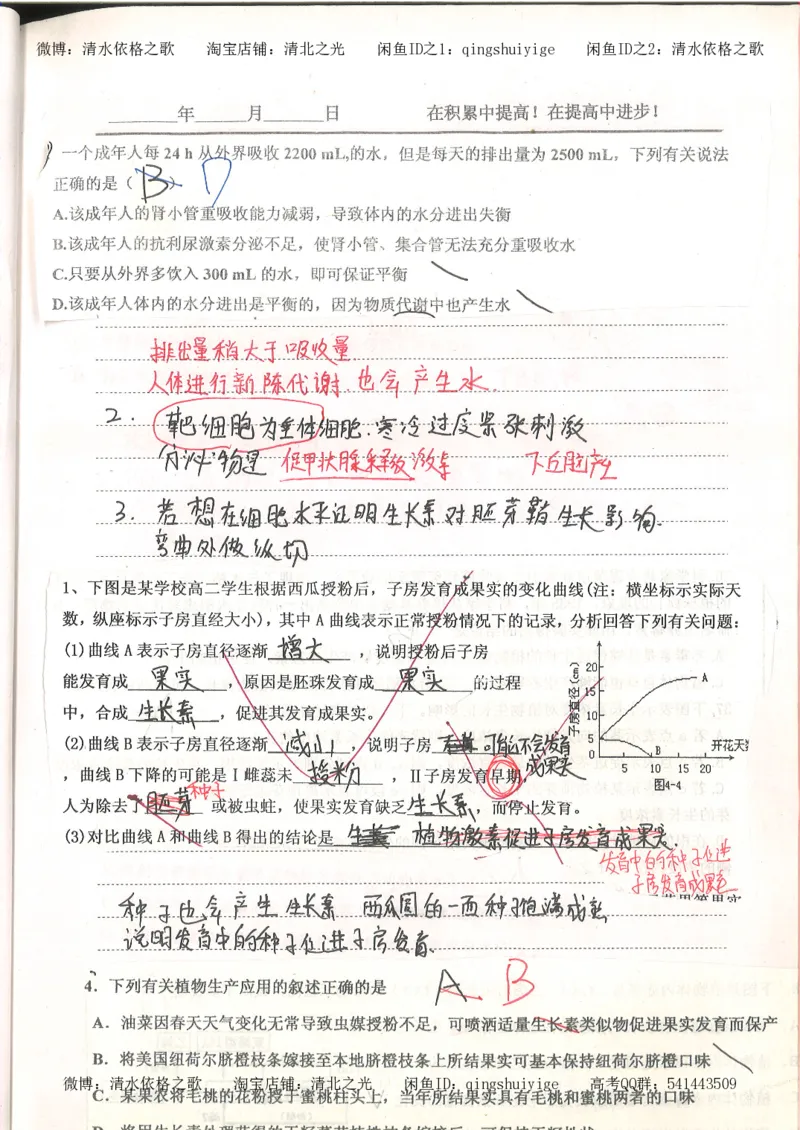 微博：清水依格之歌　淘宝店铺：清北之光　闲鱼ID之1：qingshuiyige　闲鱼ID之2：清水依格之歌
______年______月______日　在积累中提高！在提高中进步！
一个成年人每 24 h 从外界吸收 2200 mL,的水，但是每天的排出量为 2500 mL，下列有关说法
正确的是（ B ） D
A.该成年人的肾小管重吸收能力减弱，导致体内的水分进出失衡
B.该成年人的抗利尿激素分泌不足，使肾小管、集合管无法充分重吸收水
C.只要从外界多饮入 300 mL 的水，即可保证平衡
D.该成年人体内的水分进出是平衡的，因为物质代谢中也产生水
排出量稍大于吸收量
人体进行新陈代谢.也会产生水.
2. 靶细胞为垂体细胞.寒冷过度紧张刺激
分泌物是 促甲状腺释放激素　下丘脑产
3. 若想在细胞水平证明生长素对胚芽鞘生长影响.
弯曲处做纵切
1、下图是某学校高二学生根据西瓜授粉后，子房发育成果实的变化曲线(注：横坐标示实际天
数，纵座标示子房直经大小)，其中 A 曲线表示正常授粉情况下的记录，分析回答下列有关问题：
(1)曲线 A 表示子房直径逐渐 增大 ，说明授粉后子房
能发育成 果实 ，原因是胚珠发育成 果实 的过程
中，合成 生长素 ，促进其发育成果实。
(2)曲线 B 表示子房直径逐渐 减小 ，说明子房 可能不会发育
成果实
，曲线 B 下降的可能是Ⅰ雌蕊未 授粉 ，Ⅱ子房发育早期，
种子
人为除去了 胚芽 或被虫蛀，使果实发育缺乏 生长素 ，而停止发育。
(3)对比曲线 A 和曲线 B 得出的结论是 植物激素促进子房发育成果实.
子房直径(cm)
20
15
10
5
0
A
B
5 10 15 20
开花天数
图4-4
发育中的种子促进
子房发育成果实
种子也会产生生长素 西瓜图的一面种子饱满成熟
说明发育中的种子促进子房发育.
4．下列有关植物生产应用的叙述正确的是　A. B
A．油菜因春天天气变化无常导致虫媒授粉不足，可喷洒适量生长素类似物促进果实发育而保产
B．将美国纽荷尔脐橙枝条嫁接至本地脐橙枝条上所结果实可基本保持纽荷尔脐橙口味
微博：清水依格之歌　淘宝店铺：清北之光　闲鱼ID：qingshuiyige　高考QQ群：541443509
C．某果农将毛桃的花粉授于蜜桃柱头上，当年所结果实具有毛桃和蜜桃两者的口味